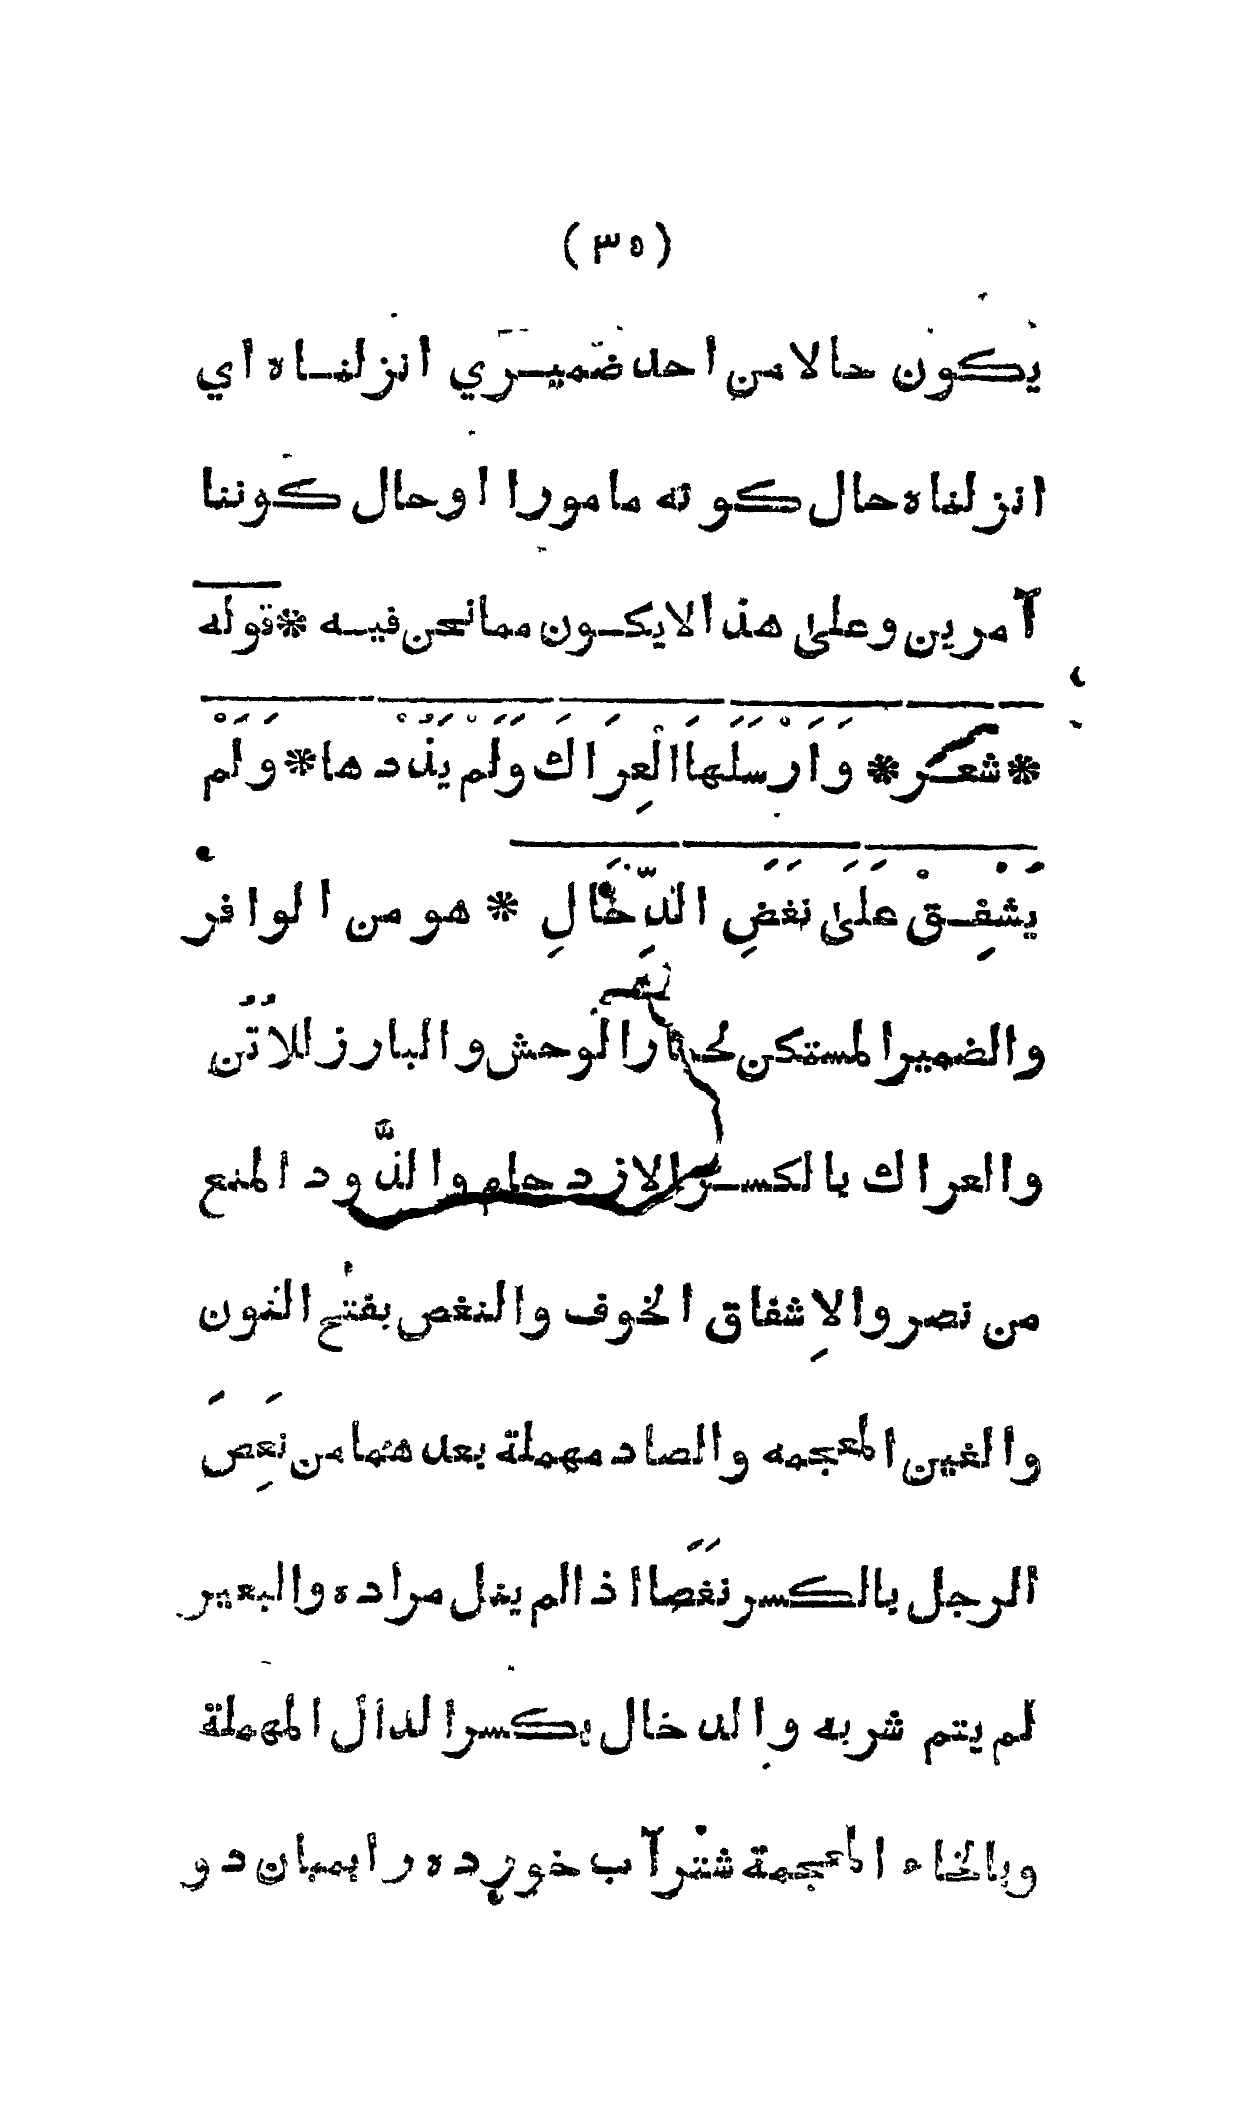 (٣٥)
يكون حالا من احد ضميري انزلناه اي
انزلناه حال كونه مامورا او حال كوننا
آمرين وعلى هذا لايكون ممانحن فيه * قوله
* شعر * وَاَرْسَلَهاالْعِرَاكَ وَلَمْ يَذُدْها * وَلَمْ
يُشْفِقْ عَلَى نَغَضِ الدِّخَالِ * هو من الوافر
والضمير المستكن لحمار الوحش والبارز للاُتُن
والعراك بالكسر الازدحام والذَّود المنع
من نصر والاِشفاق الخوف والنغص بفتح النون
والغين المعجمه والصاد مهملة بعدهما من نَغِصَ
الرجل بالكسر نغَصًا اذالم ينل مراده والبعير
لم يتم شربه والدخال بكسرالدال المهملة
وبالخاء المعجمة شترآب خورده رابميان دو